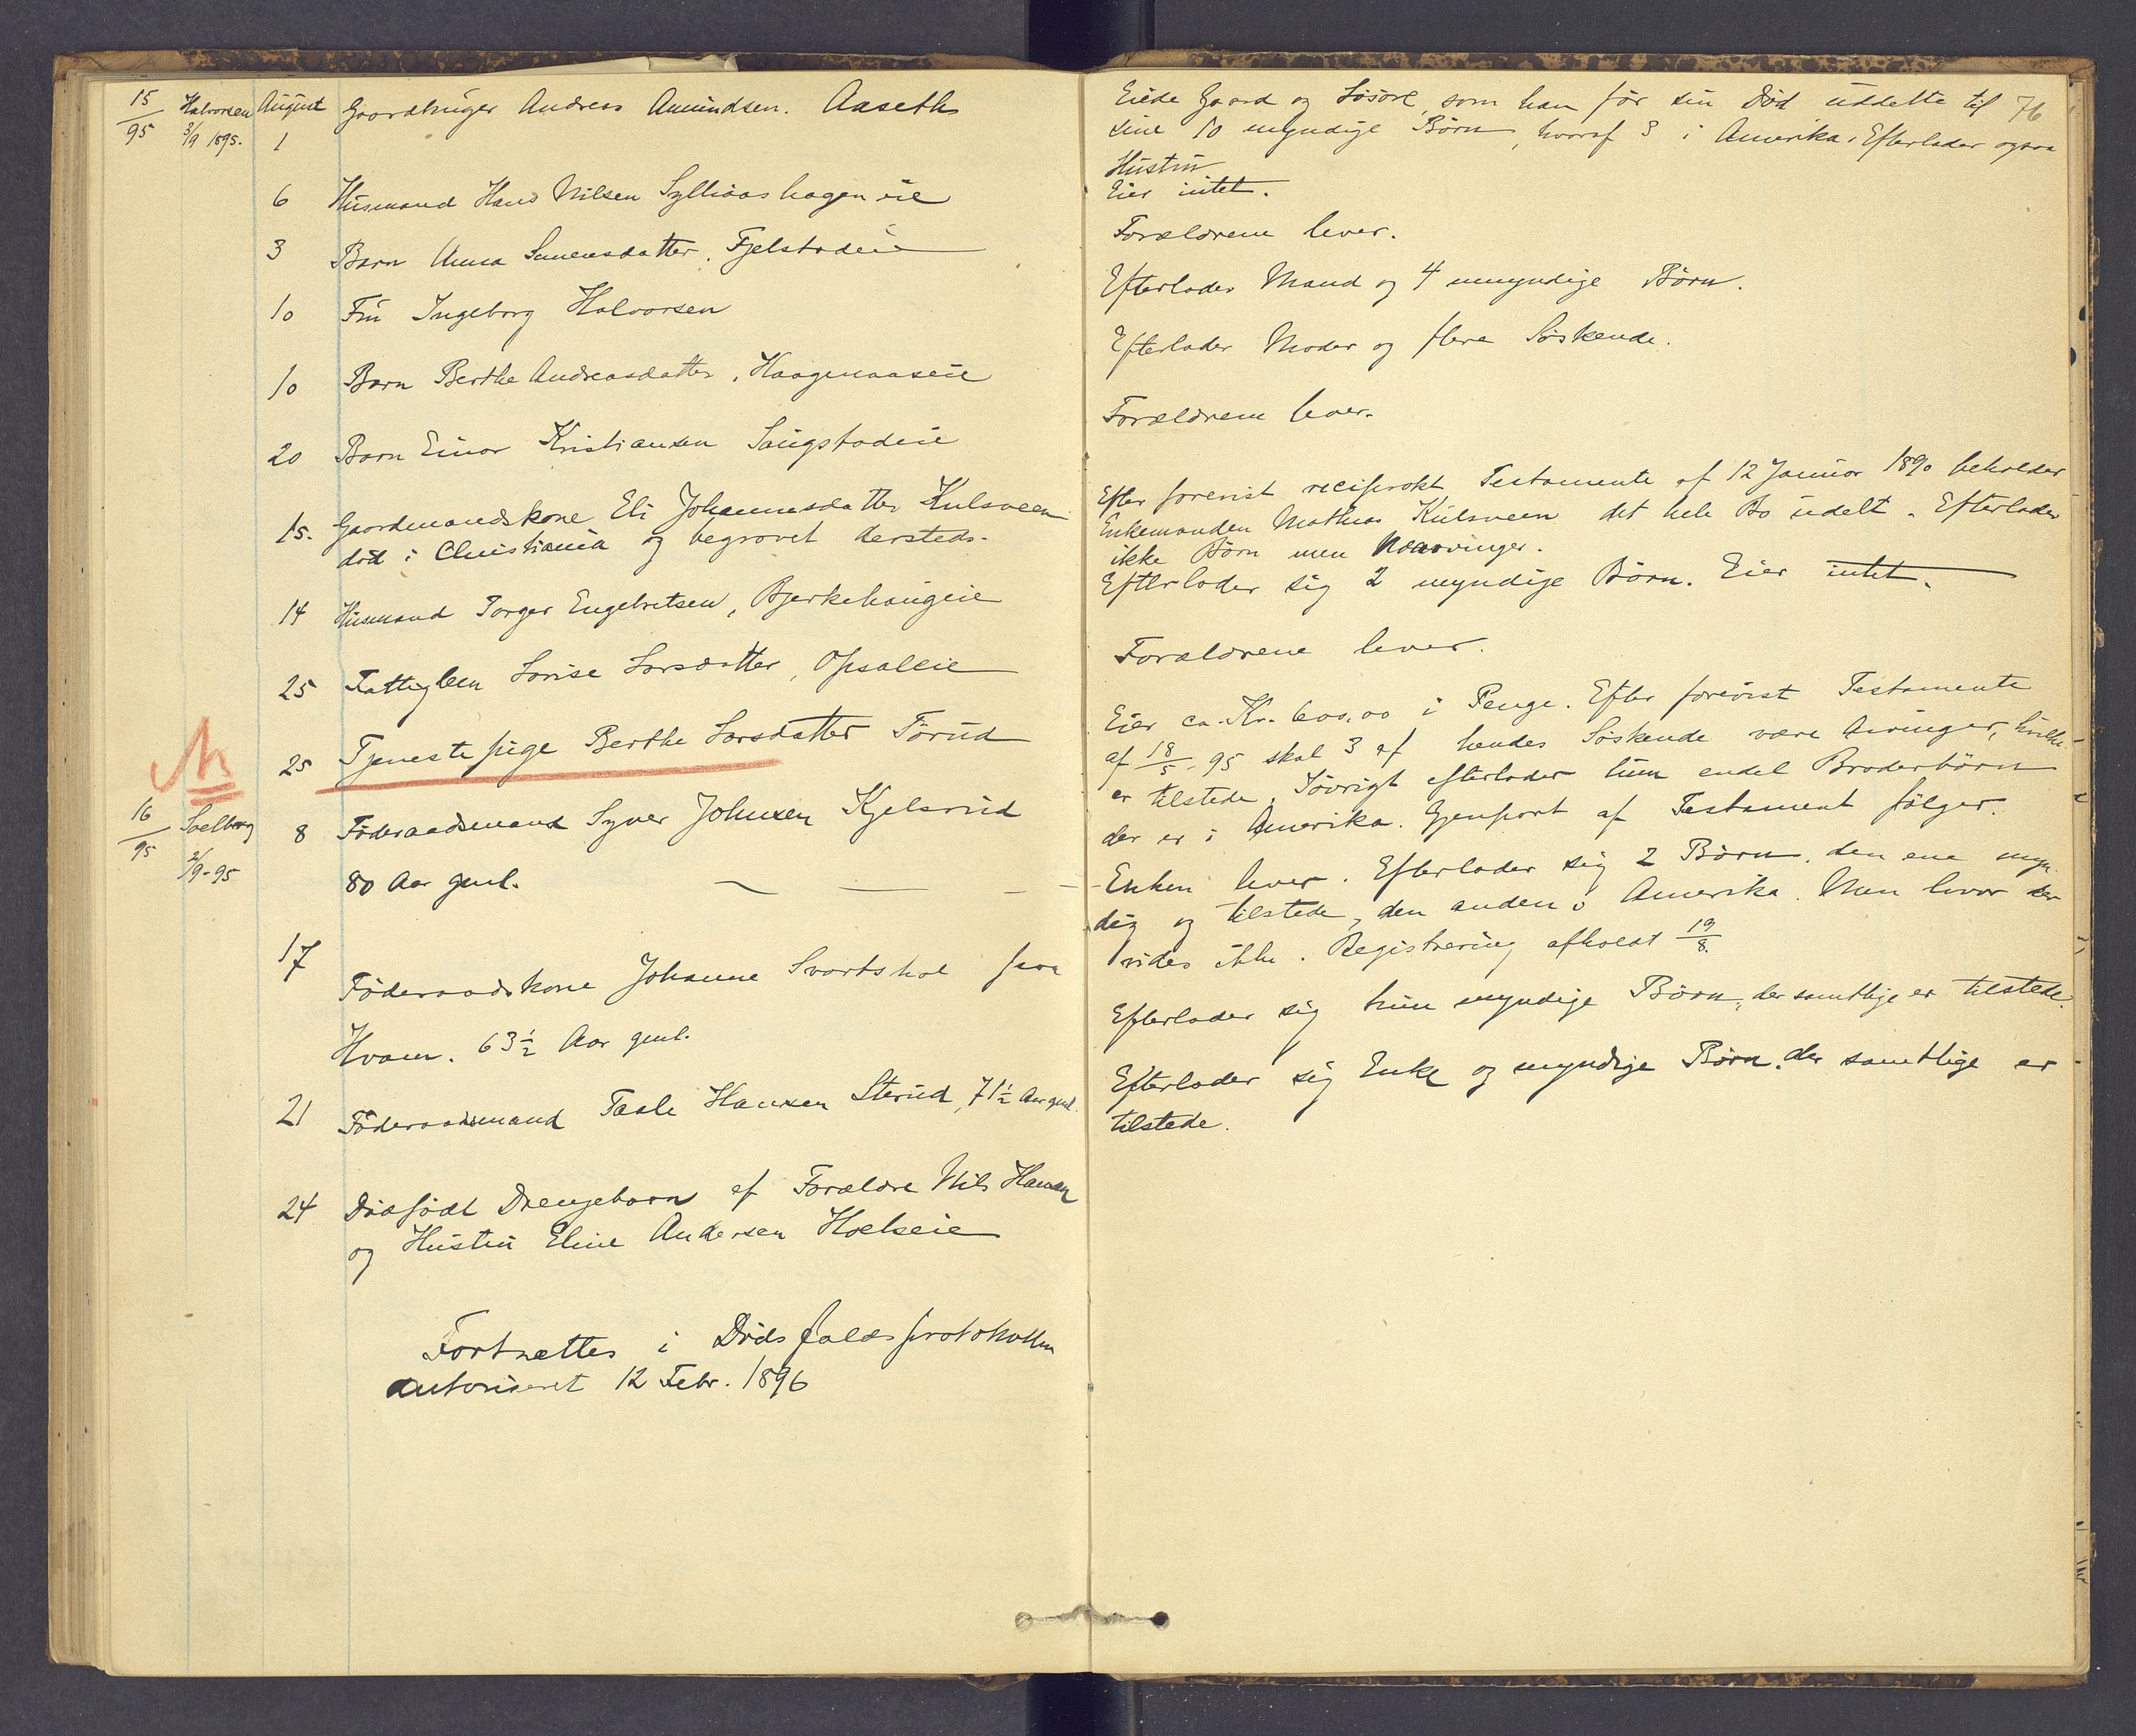 15/95 Halvorsen 3/9 1895. August 1 Gaardbruger Andreas Amundsen. Aaseth
6 Husmand Hans Nilsen Sylliaashagen eie
3 Barn Anna Simensdatter. Fjelstadeie
10 Fru Ingeborg Halvorsen
10 Barn Berthe Andreasdatter, Haagenaaseie
20 Barn Einar Kristiansen Saugstadeie
15. Gaardmandskone Eli Johannesdatter Kulsveen
död i Christiania og begravet dersteds.
14 Husmand Torger Engebretsen, Bjerkehaugeie
25 Fattiglem Lovise Larsdatter, Opsaleie
25 Tjenestepige Berthe Larsdatter Törud
16/95 Soelberg 2/9-95 8 Föderaadsmand Syver Johnsen Kjelsrud
80 Aar gml.
17 Föderaadskone Johanne Svartshol paa
Hvam. 63 1/2 Aar gml.
21 Föderaadsmand Taale Hansen Sterud, 71 1/2 Aar gml.
24 Dödfödt Drengebarn af Forældre Nils Hansen
og Hustru Eline Andersen Hoelseie
Fortsættes i Dödsfaldsprotokollen
autoriseret 12 Febr. 1896
76
Eiede Gaard og Lösöre, som han för sin Död uddelte til
sine 10 myndige Börn, hvoraf 3 i Amerika. Efterlader ogsaa
Hustru
Eier intet.
Forældrene lever.
Efterlader Mand og 4 umyndige Börn.
Efterlader Moder og flere Söskende.
Forældrene lever.
Efter forevist reciprokt Testamente af 12 Januar 1890 beholder
Enkemanden Mathias Kulsveen det hele Bo udelt. Efterlader
ikke Börn men Udarvinger.
Efterlader sig 2 myndige Börn. Eier intet.
Forældrene lever.
Eier ca. Kr. 600,00 i Penge. Efter forevist Testamente
af 18/5-95 skal 3 af hendes Söskende være Arvinger, hvilke
er tilstede. Iövrigt efterlader hun endel Broderbörn
der er i Amerika. Gjenpart af Testament fölger.
Enken lever. Efterlader sig 2 Börn, den ene myn-
dig og tilstede, den anden i Amerika. Men hvor der
vides ikke. Registrering afholdt 19/8.
Efterlader sig kun myndige Börn, der samtlige er tilstede.
Efterlader sig Enke og myndige Börn, der samtlige er
tilstede.